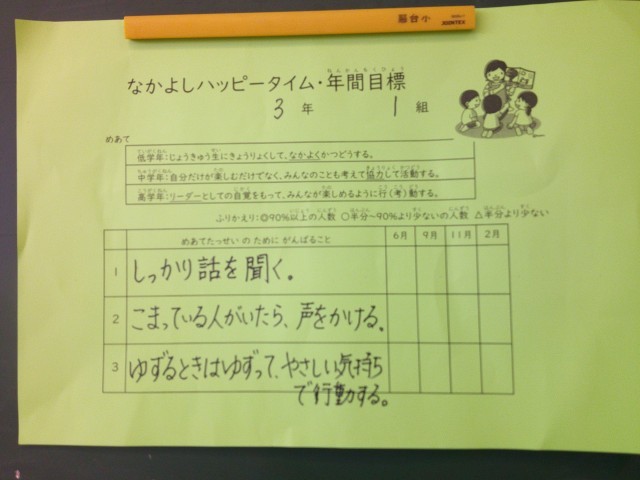 藤台小
JOINTEX
なかよしハッピータイム・年間目標
ねんかんもくひょう
3年 1組
めあて
低学年:じょうきゅう生にきょうりょくして、なかよくかつどうする。
中学年:自分だけが楽しむだけでなく、みんなのことも考えて協力して活動する。
高学年:リーダーとしての自覚をもって、みんなが楽しめるように行(考)動する。
ふりかえり:◎90%以上の人数 ○半分~90%より少ないの人数 △半分より少ない
めあてたっせい の ために がんばること 6月 9月 11月 2月
1 しっかり話を聞く。
2 こまっている人がいたら、声をかける。
3 ゆずるときはゆずって、やさしい気持ち
で行動する。